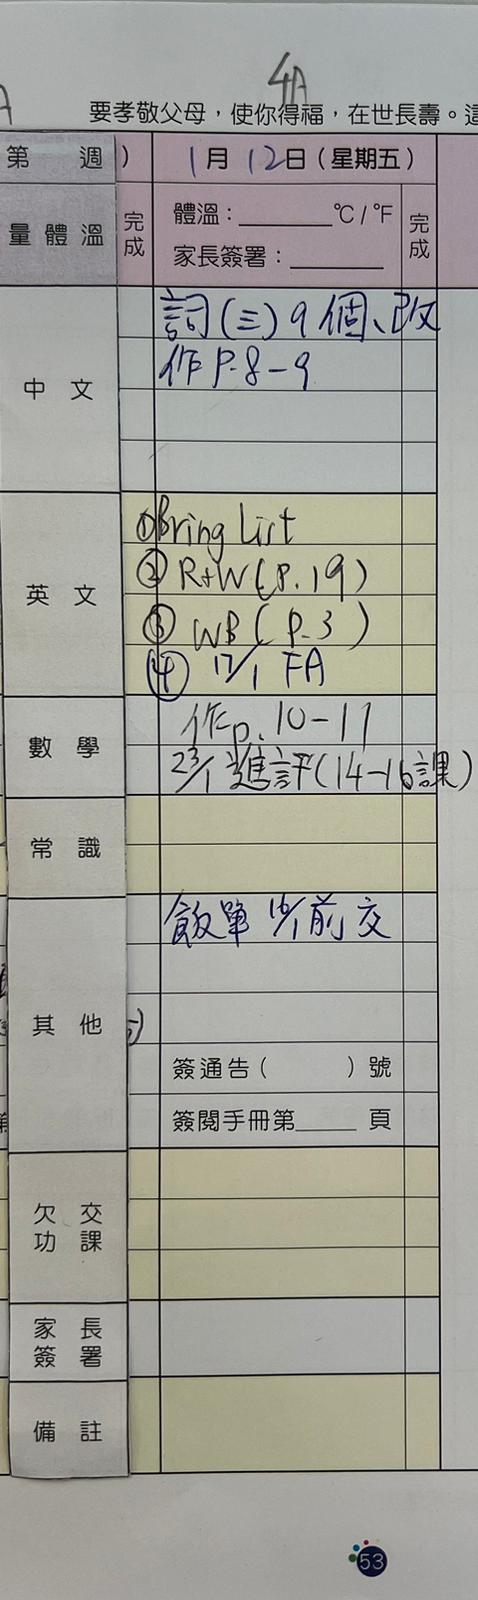 4A
要孝敬父母，使你得福，在世長壽。這
第 週 ) 1月12日(星期五)
量體溫 完成 體溫：______℃/℉ 完成
家長簽署：______
中文 詞(三)9個、改
作P.8-9
英文 ①Bring List
②R+W(P.19)
③WB(P.3)
④17/1 FA
數學 作p.10-11
23/1 進評(14-16課)
常識
其他 飯單 16/1前交
簽通告( )號
簽閱手冊第____頁
欠交功課
家長簽署
備註
53